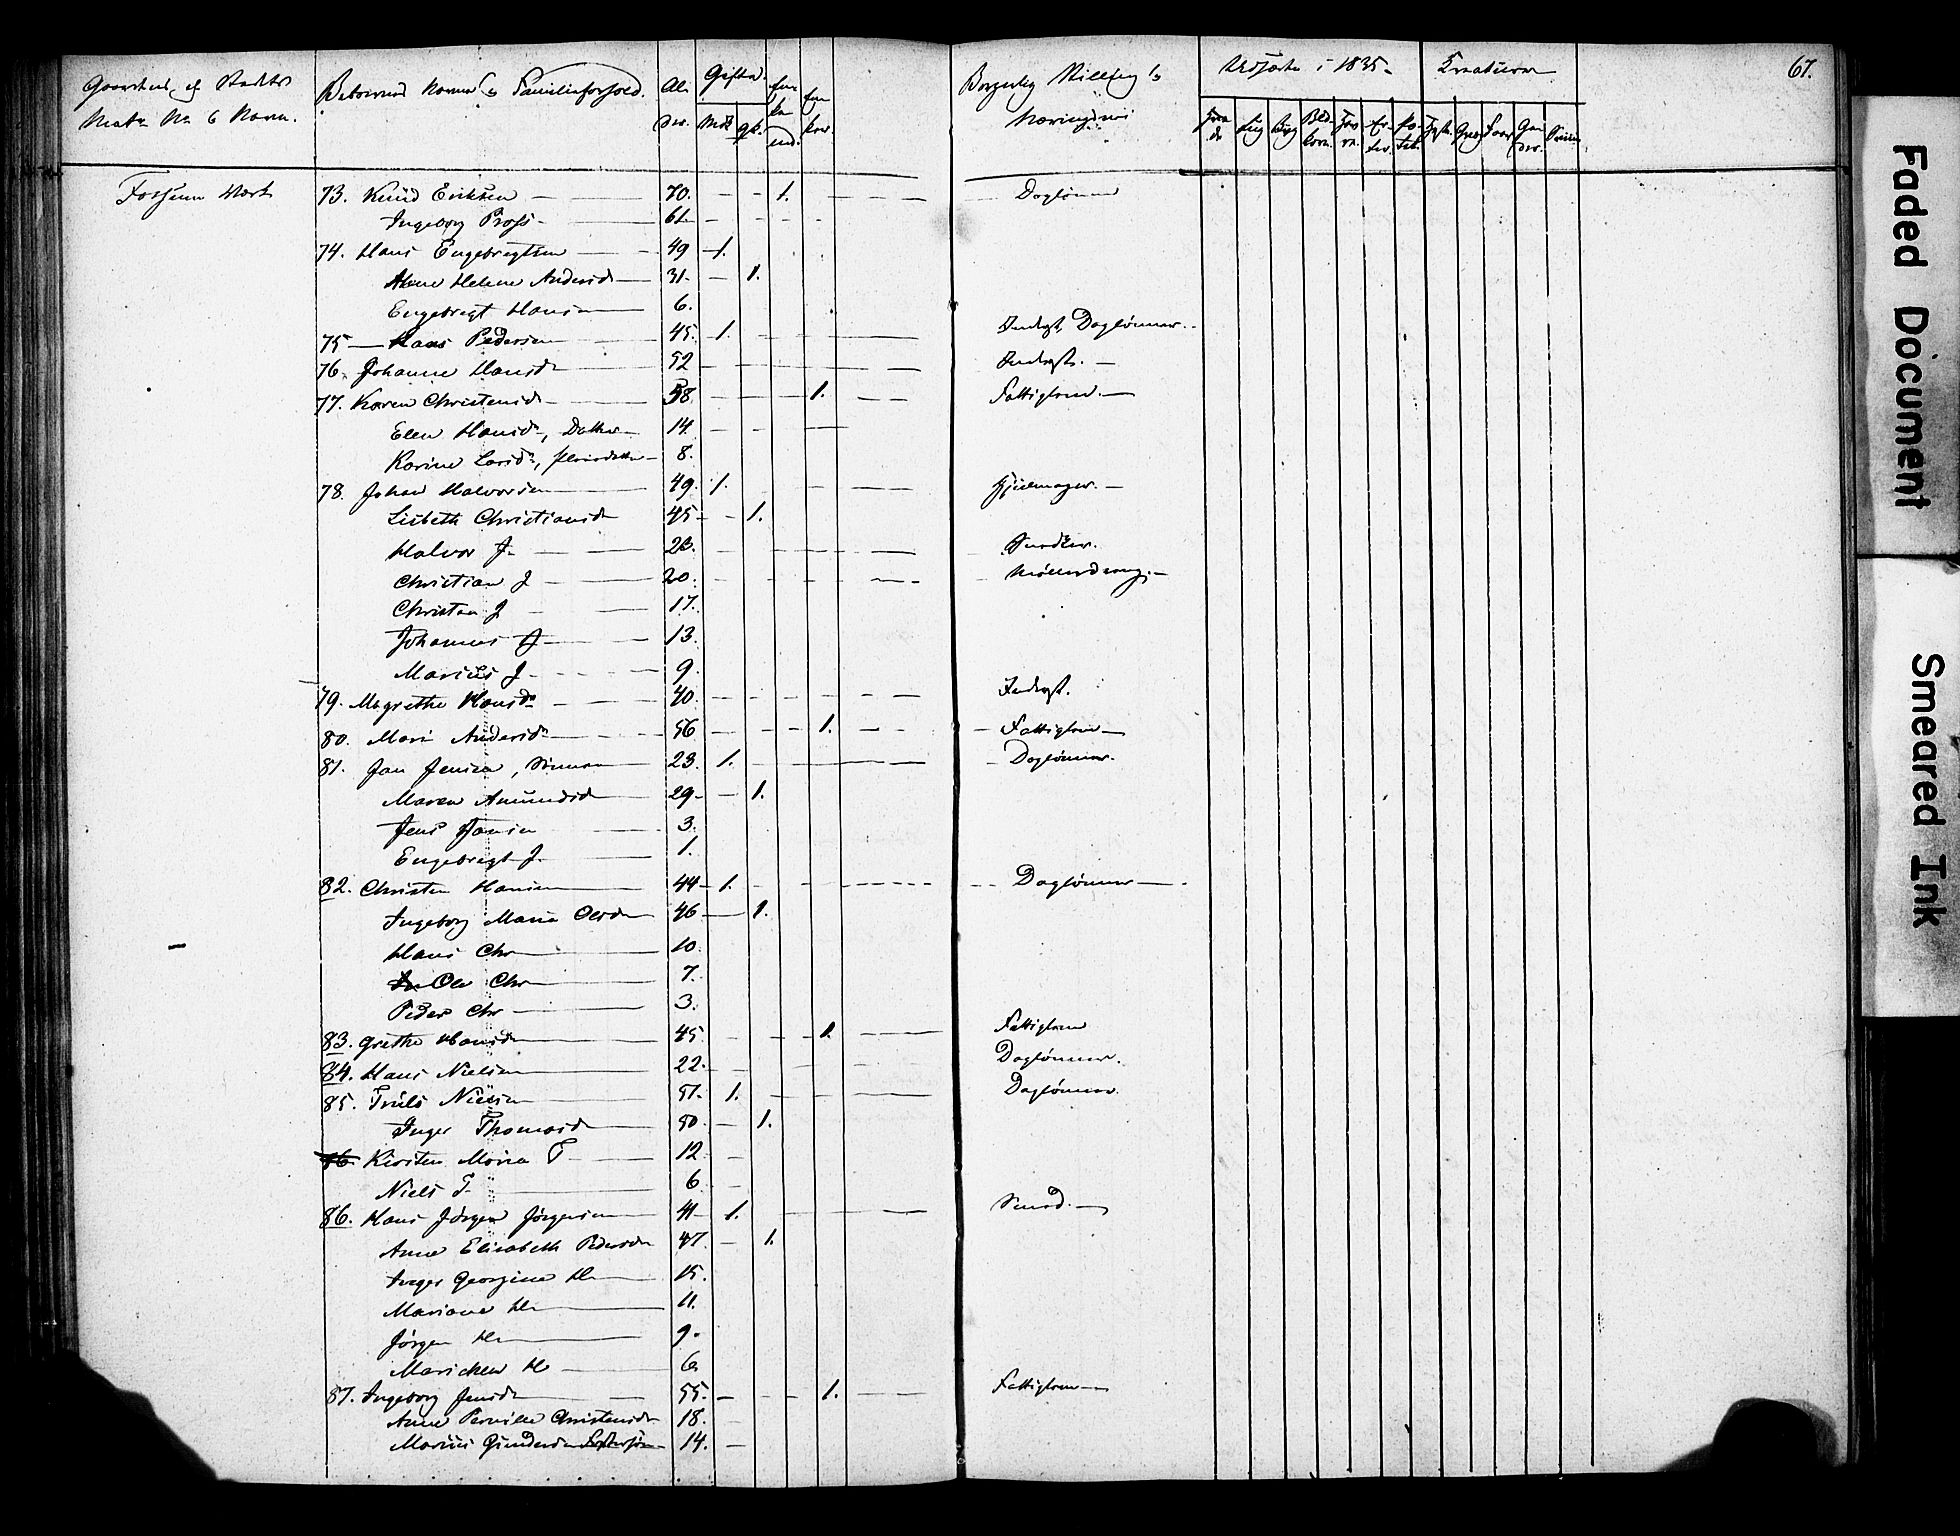 67.
Gaardens og Stedets Matr. No. & Navn.
Beboernes Navne & Familieforhold.
Al-der.
Gifte.
Mk.
qk.
Enkemd.
Enker.
Borgerlig Stilling &
Næringsvei
Udsæd i 1835.
Hvede
Rug
Byg
Havre.
Erter.
Potet.
Kreature
Heste
Faar
Sviin
Fossum Værk
73. Knud Eriksen 70. 1. Daglønner
Ingeborg 61
74. Hans Engebrigtsen 49 1.
Anne Helene Andersd. 31. 1.
Engebrigt Hansen 6.
75 Hans Pedersen 45. 1. Inderst, Daglønner.
76. Johanne Hansd. 52 Inderst.
77. Karen Christensd. 58. 1. Fattiglem.
Elen Hansd., Datter 14.
Karine Larsd., 8.
78. Johan Halvorsen 49. 1. Hjulmager.
Lisbeth Christiansd. 45 1.
Halvor J. 23. Snedker.
Christian J 20. Møllerdreng.
Christen J 17.
Johannes J 13.
Marius J. 9.
79. Magrethe Hansd. 40. Inderst.
80. Mari Andersd. 56 1. Fattiglem
81. Jan Jensen, 23. 1. Daglønner.
Maren Amundsd. 29. 1.
Jens Jansen 3.
Engebregt J. 1.
82. Christen Hansen 44 1. Daglønner
Ingeborg Maria Olsd. 46 1.
Hans Chr 10.
Ole Chr 7.
Peder Chr 3.
83. Grethe Hansd. 45. 1. Fattiglem
84. Hans Nielsen 22. Daglønner.
85. Truls Nielsen 51. 1. Daglønner.
Inger Thomasd. 50. 1.
86. Kirsten Maria T 12
Niels T. 6
86. Hans Jørgen Jørgensen 41 1. Smed.
Anne Elisabeth Pedersd. 47. 1.
Inger Georgine H. 15.
Mariane H. 11.
Jørgen H. 9.
Marichen H 6.
87. Ingeborg Jensd. 55. 1. Fattiglem
Anne Pernille Christensd. 18.
Marius Gundersen Fostersøn 14.
Faded Document
Smeared Ink